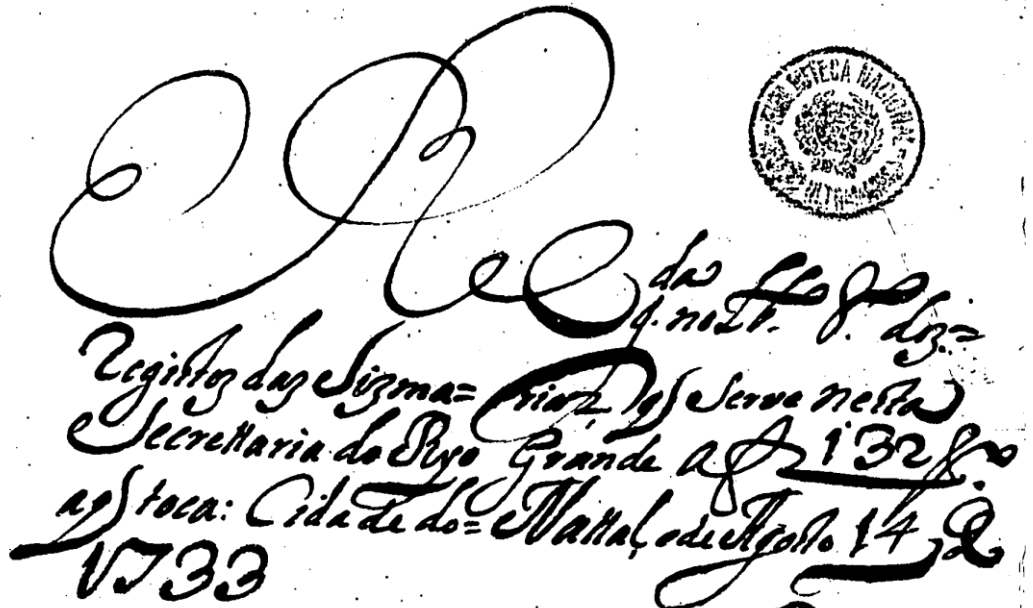 BIBLIOTECA NACIONAL
Reg.da
q. no Lº. 8º. dos=
Registos das Sizma= rias q. serve nesta
Secrettaria do Ryo Grande a f 132 
a q toca: Cidade do= Nattal, e de Agosto 14 de
1733